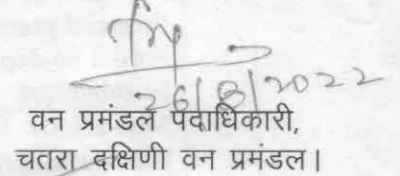 26/8/2022
वन प्रमंडल पदाधिकारी,
चतरा दक्षिणी वन प्रमंडल।